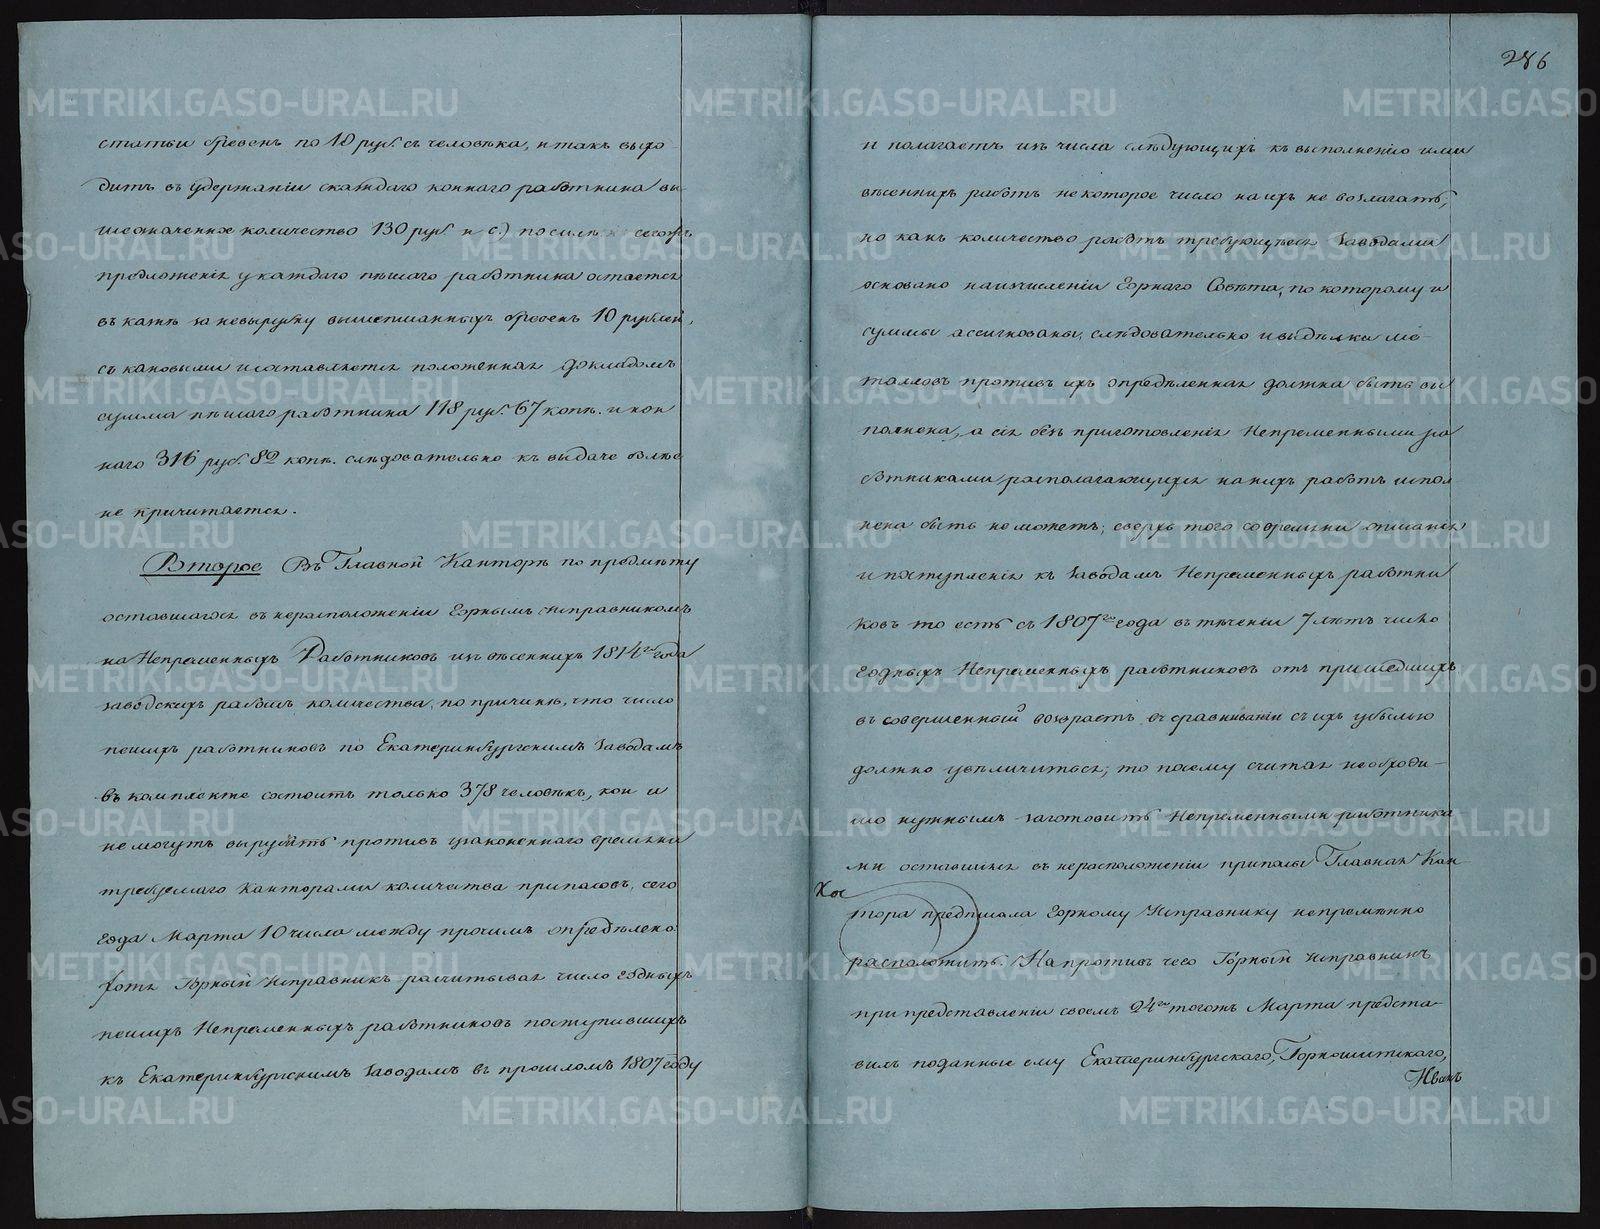 статьи бревенъ по 10 руб. съ человѣка, итакъ выхо-
дитъ въ удержаніи скаждаго коннаго работника вы-
шеозначенное количество 130 руб и с.) посилѣ сегожъ
предложенія укаждаго пѣшаго работника остается
въ казнѣ за невырубку вышеписанныхъ бревенъ 10 рублей,
съ каковыми исоставляется положенная докладомъ
сумма пѣшаго работника 118 руб. 67 копѣ. и кон
наго 316 руб. 82 копѣ. слѣдовательно къ выдаче болѣе
не причитается.
Второе Въ Главной Канторѣ по предмѣту
оставшагося въ нерасположеніи Горнымъ Исправникомъ
на Непременныхъ Работниковъ изъ вѣсеннихъ 1814го года
заводскихъ работъ количества, по причинѣ, что число
пешихъ работниковъ по Екатеринбургскимъ заводамъ
въ комплекте состоитъ только 378 человѣкъ, кои и
не могутъ вырубить противъ узаконеннаго времени
требуемаго Канторами количества припасовъ, сего
года Марта 10 числа между прочимъ опредѣлено:
хотя Горный Исправникъ расчитывая число годныхъ
пешихъ Непременныхъ работниковъ поступившихъ
къ Екатеринбургскимъ заводамъ въ прошломъ 1807 году
286
и полагаетъ изъ числа слѣдующихъ къ выполненію ими
вѣсеннихъ работъ некоторое число на ихъ не возлагать,
но какъ количество работъ требующееся Заводами
основано наизчисленіи Горнаго Совѣта, по которому и
суммы ассигнованы, слѣдовательно ивыдѣлка ме-
талловъ противъ ихъ опредѣленная должна быть вы
полнена, а сія безъ приготовленія Непременными ра
ботниками располагающихся на нихъ работъ испол
нена быть не можетъ; сверхъ того со времени описанія
и поступленія къ заводамъ Непременныхъ работни
ковъ то есть съ 1807го года въ тѣченіи 7 лѣтъ число
годныхъ Непременныхъ работниковъ отъ пришедшихъ
въ совершенный возрастъ въ сравниваніи съ ихъ убылью
должно увѣличиться; то посему считая необходи-
мо нужнымъ заготовить Непременными работника
ми оставшіяся въ нерасположеніи припасы Главная Кан
тора предписала Горному Исправнику непремѣнно
расположить. На противъ чего Горный Исправникъ
при представленіи своемъ 24го тогожъ Марта предста-
вилъ поданные ему Екатеринбургскаго, Горнощитскаго,
Иван